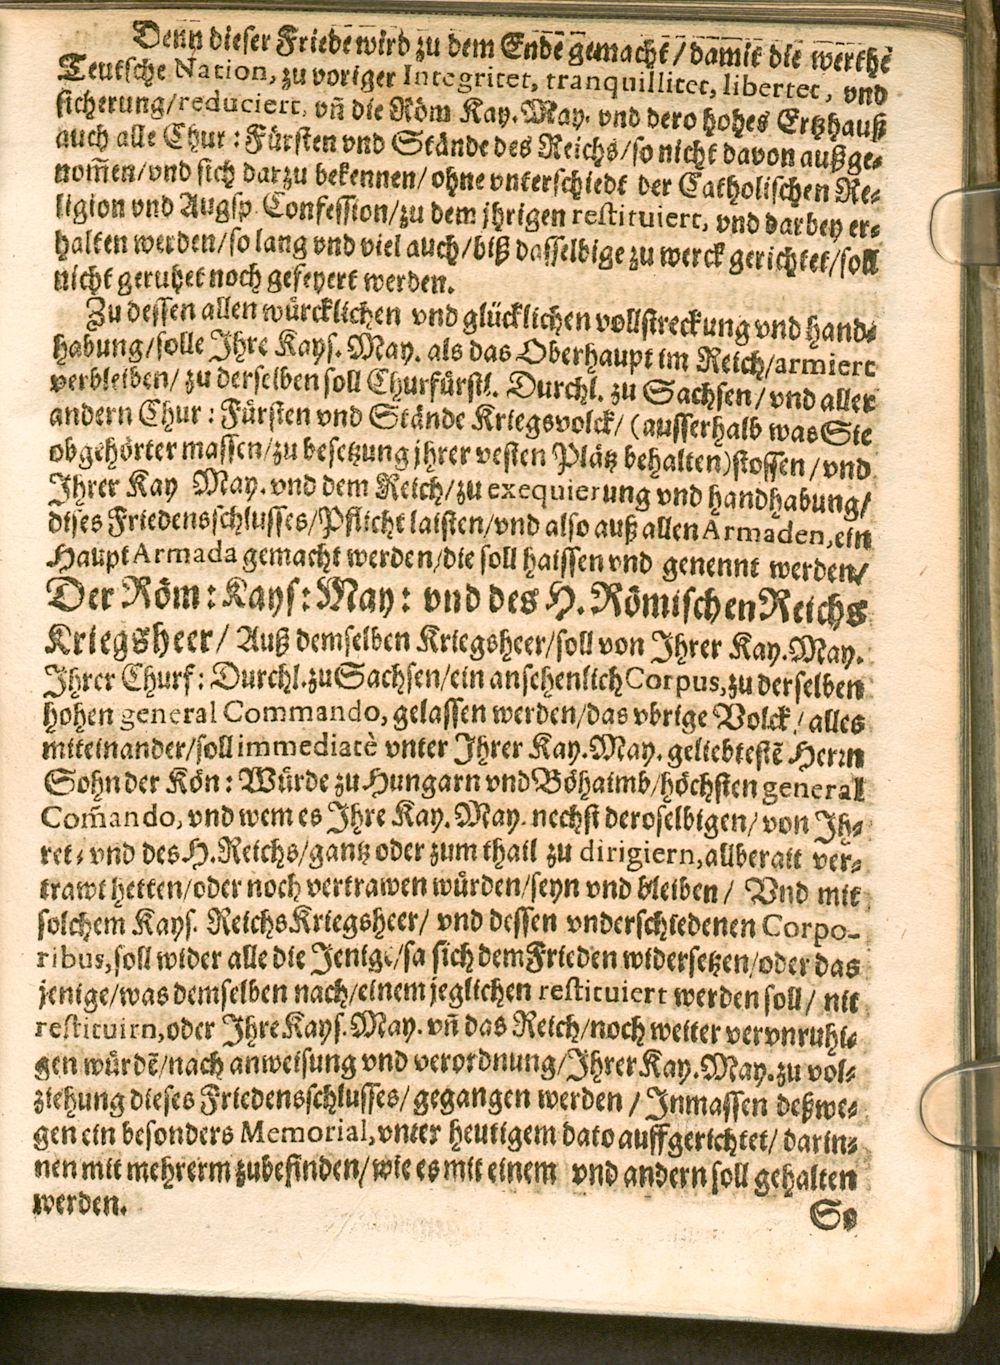 Denn dieser Friede wird zu dem Ende gemacht / damit die werthe
Teutsche Nation, zu voriger Integritet, tranquillitet, libertet, vnd
sicherung/reduciert, vñ die Röm Kay. May. vnd dero hohes Ertzhauß
auch alle Chur: Fürsten vnd Stände des Reichs/so nicht davon außge-
nom̃en/vnd sich darzu bekennen/ ohne vnterschiedt der Catholischen Re-
ligion vnd Augsp Confession/zu dem jhrigen restituiert, vnd darbey er-
halten werden/so lang vnd viel auch/biß dasselbige zu werck gerichtet/soll
nicht geruhet noch gefeyert werden.
Zu dessen allen würcklichen vnd glücklichen vollstreckung vnd hand-
habung/solle Ihre Kays. May. als das Oberhaupt im Reich/armiert
verbleiben/ zu derselben soll Churfürstl. Durchl. zu Sachsen/ vnd aller
andern Chur: Fürsten vnd Stände Kriegsvolck/ (ausserhalb was Sie
obgehörter massen/zu besetzung jhrer vesten Plätz behalten)stossen/vnd
Ihrer Kay May. vnd dem Reich/zu exequierung vnd handhabung/
dises Friedensschlusses/Pflicht laisten/vnd also auß allen Armaden, ein
Haupt Armada gemacht werden/die soll haissen vnd genennt werden/
Der Röm: Kays: May: vnd des H. Römischen Reichs
Kriegsheer/ Auß demselben Kriegsheer/soll von Ihrer Kay. May.
Ihrer Churf: Durchl. zu Sachsen/ein ansehenlich Corpus, zu derselben
hohen general Commando, gelassen werden/das vbrige Volck/ alles
miteinander/soll immediatè vnter Ihrer Kay. May. geliebtestē Herrn
Sohn der Kön: Würde zu Hungarn vnd Böhaimb/höchsten general
Com̃ando, vnd wem es Ihre Kay. May. nechst deroselbigen/ von Ih-
ret- vnd des H. Reichs/gantz oder zum thail zu dirigiern, allberait ver-
trawt hetten/oder noch vertrawen würden/seyn vnd bleiben/ Vnd mit
solchem Kays. Reichs Kriegsheer/ vnd dessen vnderschiedenen Corpo-
ribus, soll wider alle die Jenige/sa sich dem Frieden widersetzen/oder das
jenige/was demselben nach/einem jeglichen restituiert werden soll/ nit
restituirn, oder Ihre Kays. May. vñ das Reich/noch weiter vervnruhi-
gen würdē/nach anweisung vnd verordnung/Ihrer Kay. May. zu vol-
ziehung dieses Friedensschlusses/ gegangen werden / Inmassen deßwe-
gen ein besonders Memorial, vnter heutigem dato auffgerichtet/ darin-
nen mit mehrerm zubefinden/wie es mit einem vnd andern soll gehalten
werden.
So